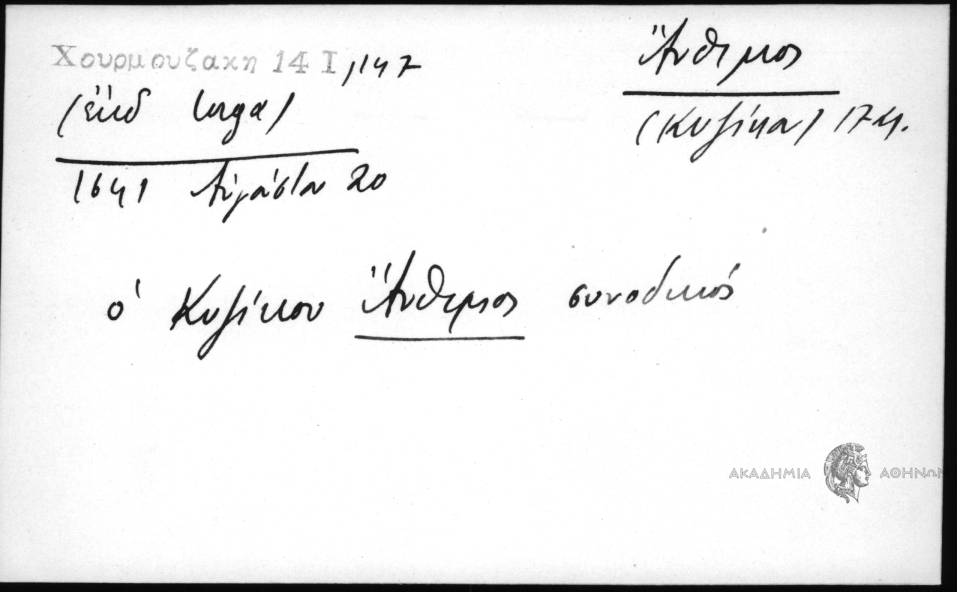 Χουρμουζακη 14 I, 147
(ἔκδ Iorga)
1641 Αὐγούστου 20
Ἄνθιμος
(Κυζίκου) 17 αι.
ὁ Κυζίκου Ἄνθιμος συνοδικός
ΑΚΑΔΗΜΙΑ ΑΘΗΝΩΝ